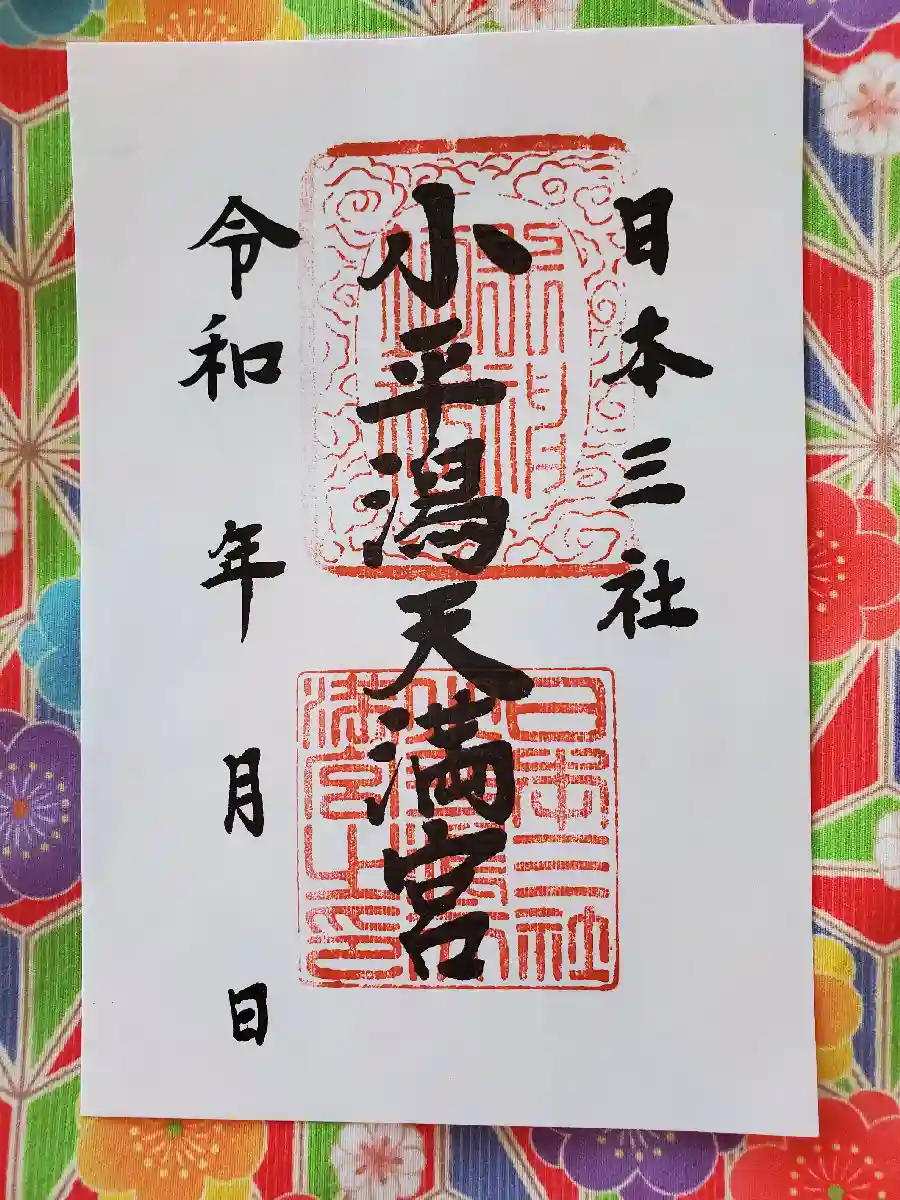 日本三社
小平潟天満宮
令和 年 月 日